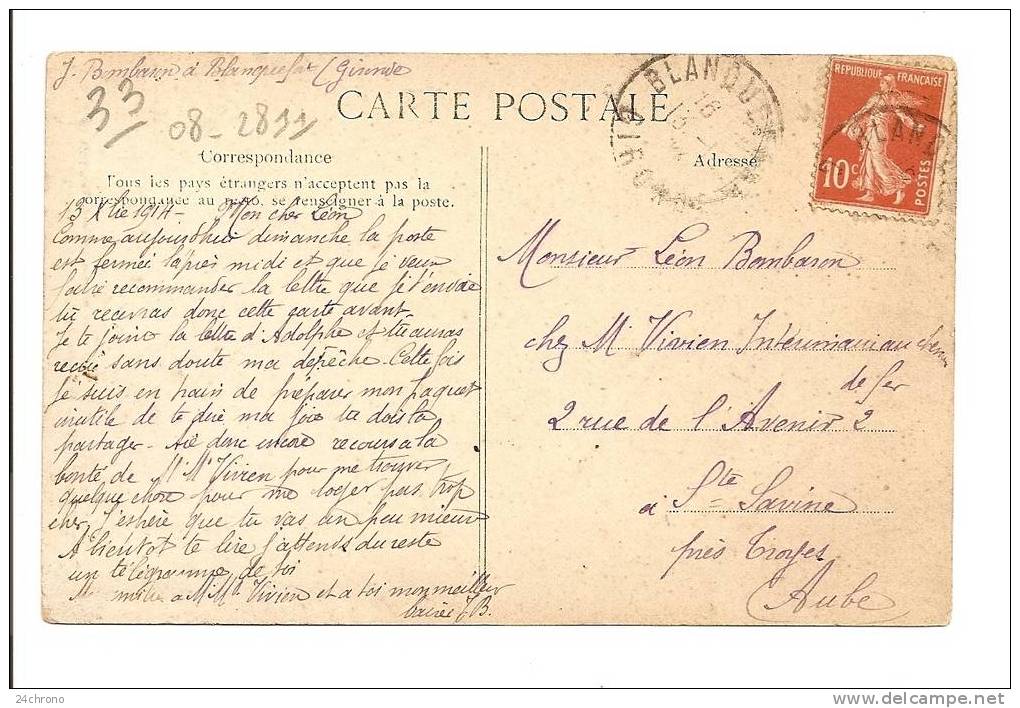 J. Bombaron à Blanquefort (Gironde
33
08-2811
CARTE POSTALE
BLANQUE
REPUBLIQUE FRANÇAISE
10c
POSTES
BLANQ
Correspondance
Adresse
Tous les pays étrangers n'acceptent pas la
correspondance au recto, se renseigner à la poste.
13 Xbre 1914 - Mon cher Léon
Comme aujourd'hui dimanche la poste
est fermée l'après midi et que je veux
faire recommander la lettre que je t'envoie
tu recevras donc cette carte avant.
Je te joins la lettre d'Adolphe et tu auras
recue sans doute ma depêche. Cette fois
Je suis en train de préparer mon paquet
inutile de te dire ma joie tu dois la
partager - donc encore recours a la
bonté de M Me Vivien pour me trouver
quelque chose pour me loger pas trop
cher. J'espère que tu vas un peu mieux
A bientot te lire j'attends du reste
un télégramme de toi
a M Me Vivien et a toi mon meilleur
J B.
Monsieur Léon Bombaron
chez Mr Vivien Intérimaire au chemin
de fer
2 rue de l'Avenir 2
à Ste Savine
près Troyes
(Aube)
24chrono
www.delcampe.net